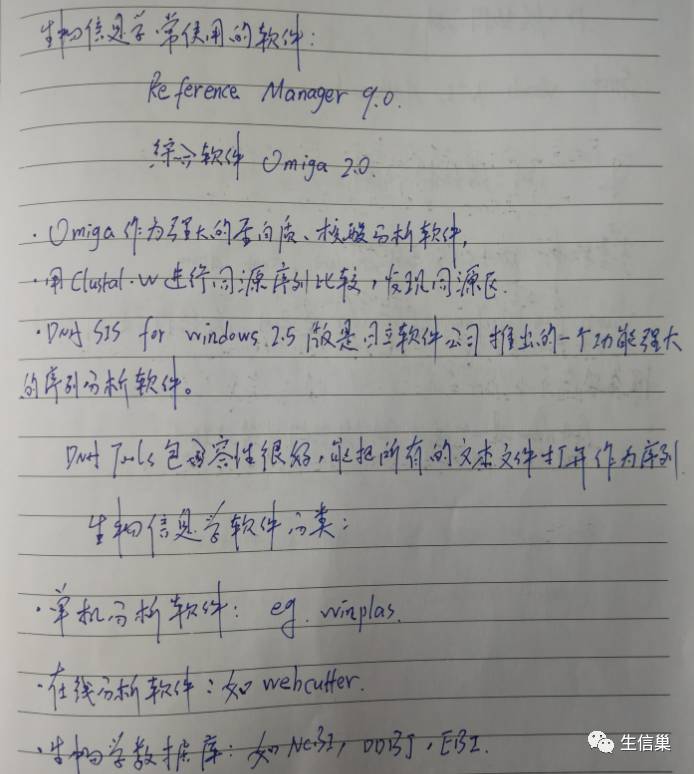 生物信息学常使用的软件:
Reference Manager 9.0.
综合软件 Omiga 2.0.
· Omiga 作为强大的蛋白质、核酸分析软件,
· 用 Clustal.W 进行同源序列比较,发现同源区.
· DNA SIS for windows 2.5 版是日立软件公司推出的一个功能强大
的序列分析软件。
DNA Tools 包容性很好,能把所有的文本文件打开作为序列
生物信息学软件分类:
· 单机分析软件: eg. winplas.
· 在线分析软件:如 webcutter.
· 生物学数据库:如 NCBI, DDBJ, EBI.
生信巢